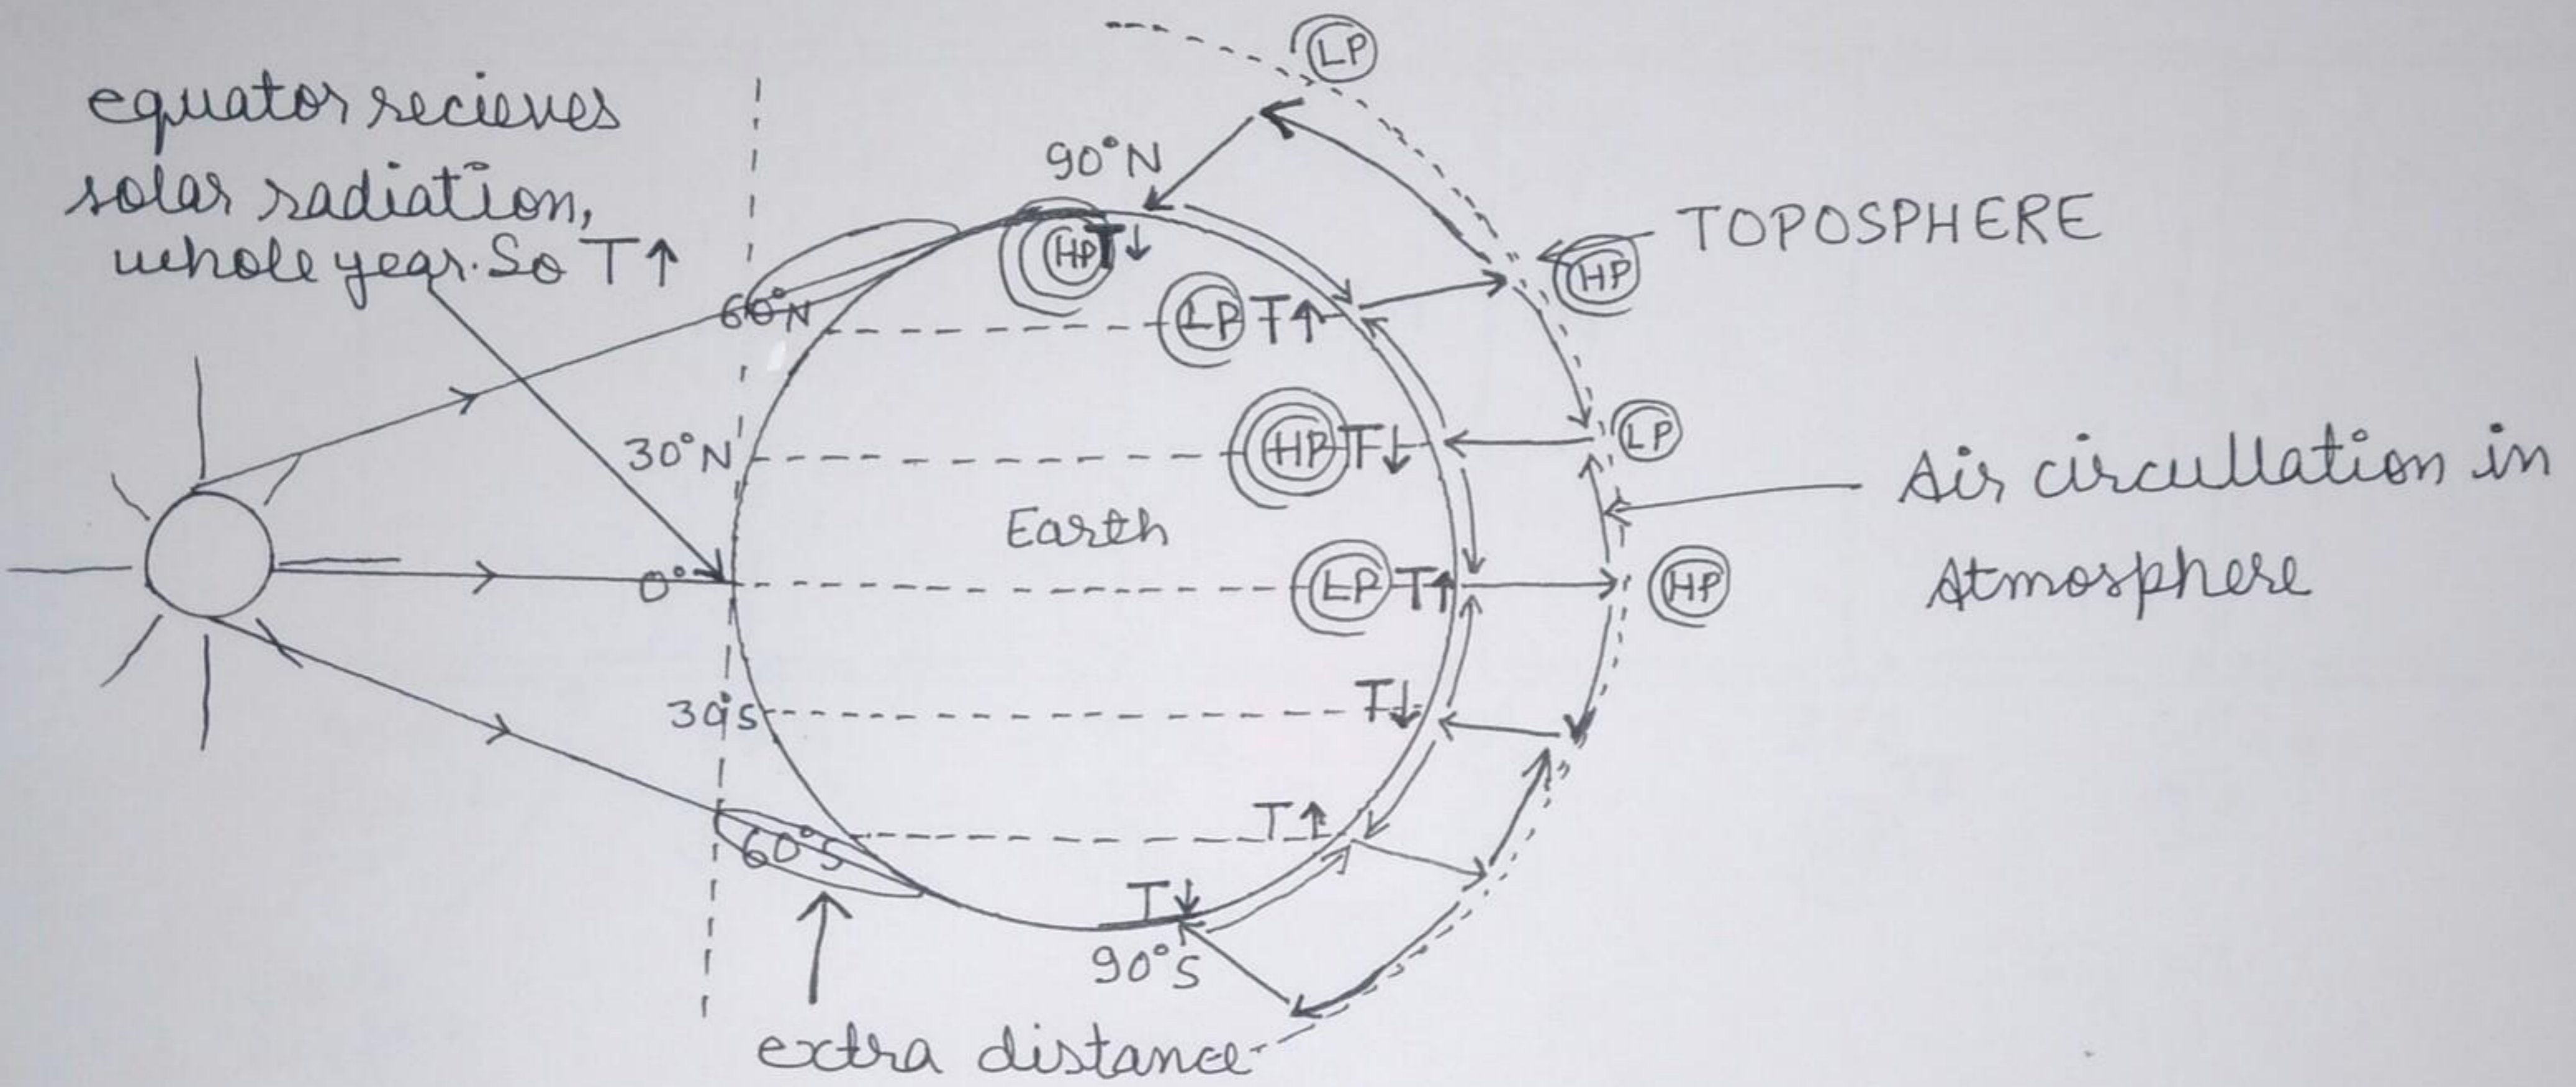 equator recieves
solar radiation,
whole year. So T↑
LP
90°N
HP T↓
TOPOSPHERE
HP
60°N
LP T↑
30°N
HP T↓
LP
Air circullation in
Atmosphere
Earth
0°
LP T↑
HP
30°S
T↓
60°S
T↑
T↓
90°S
extra distance